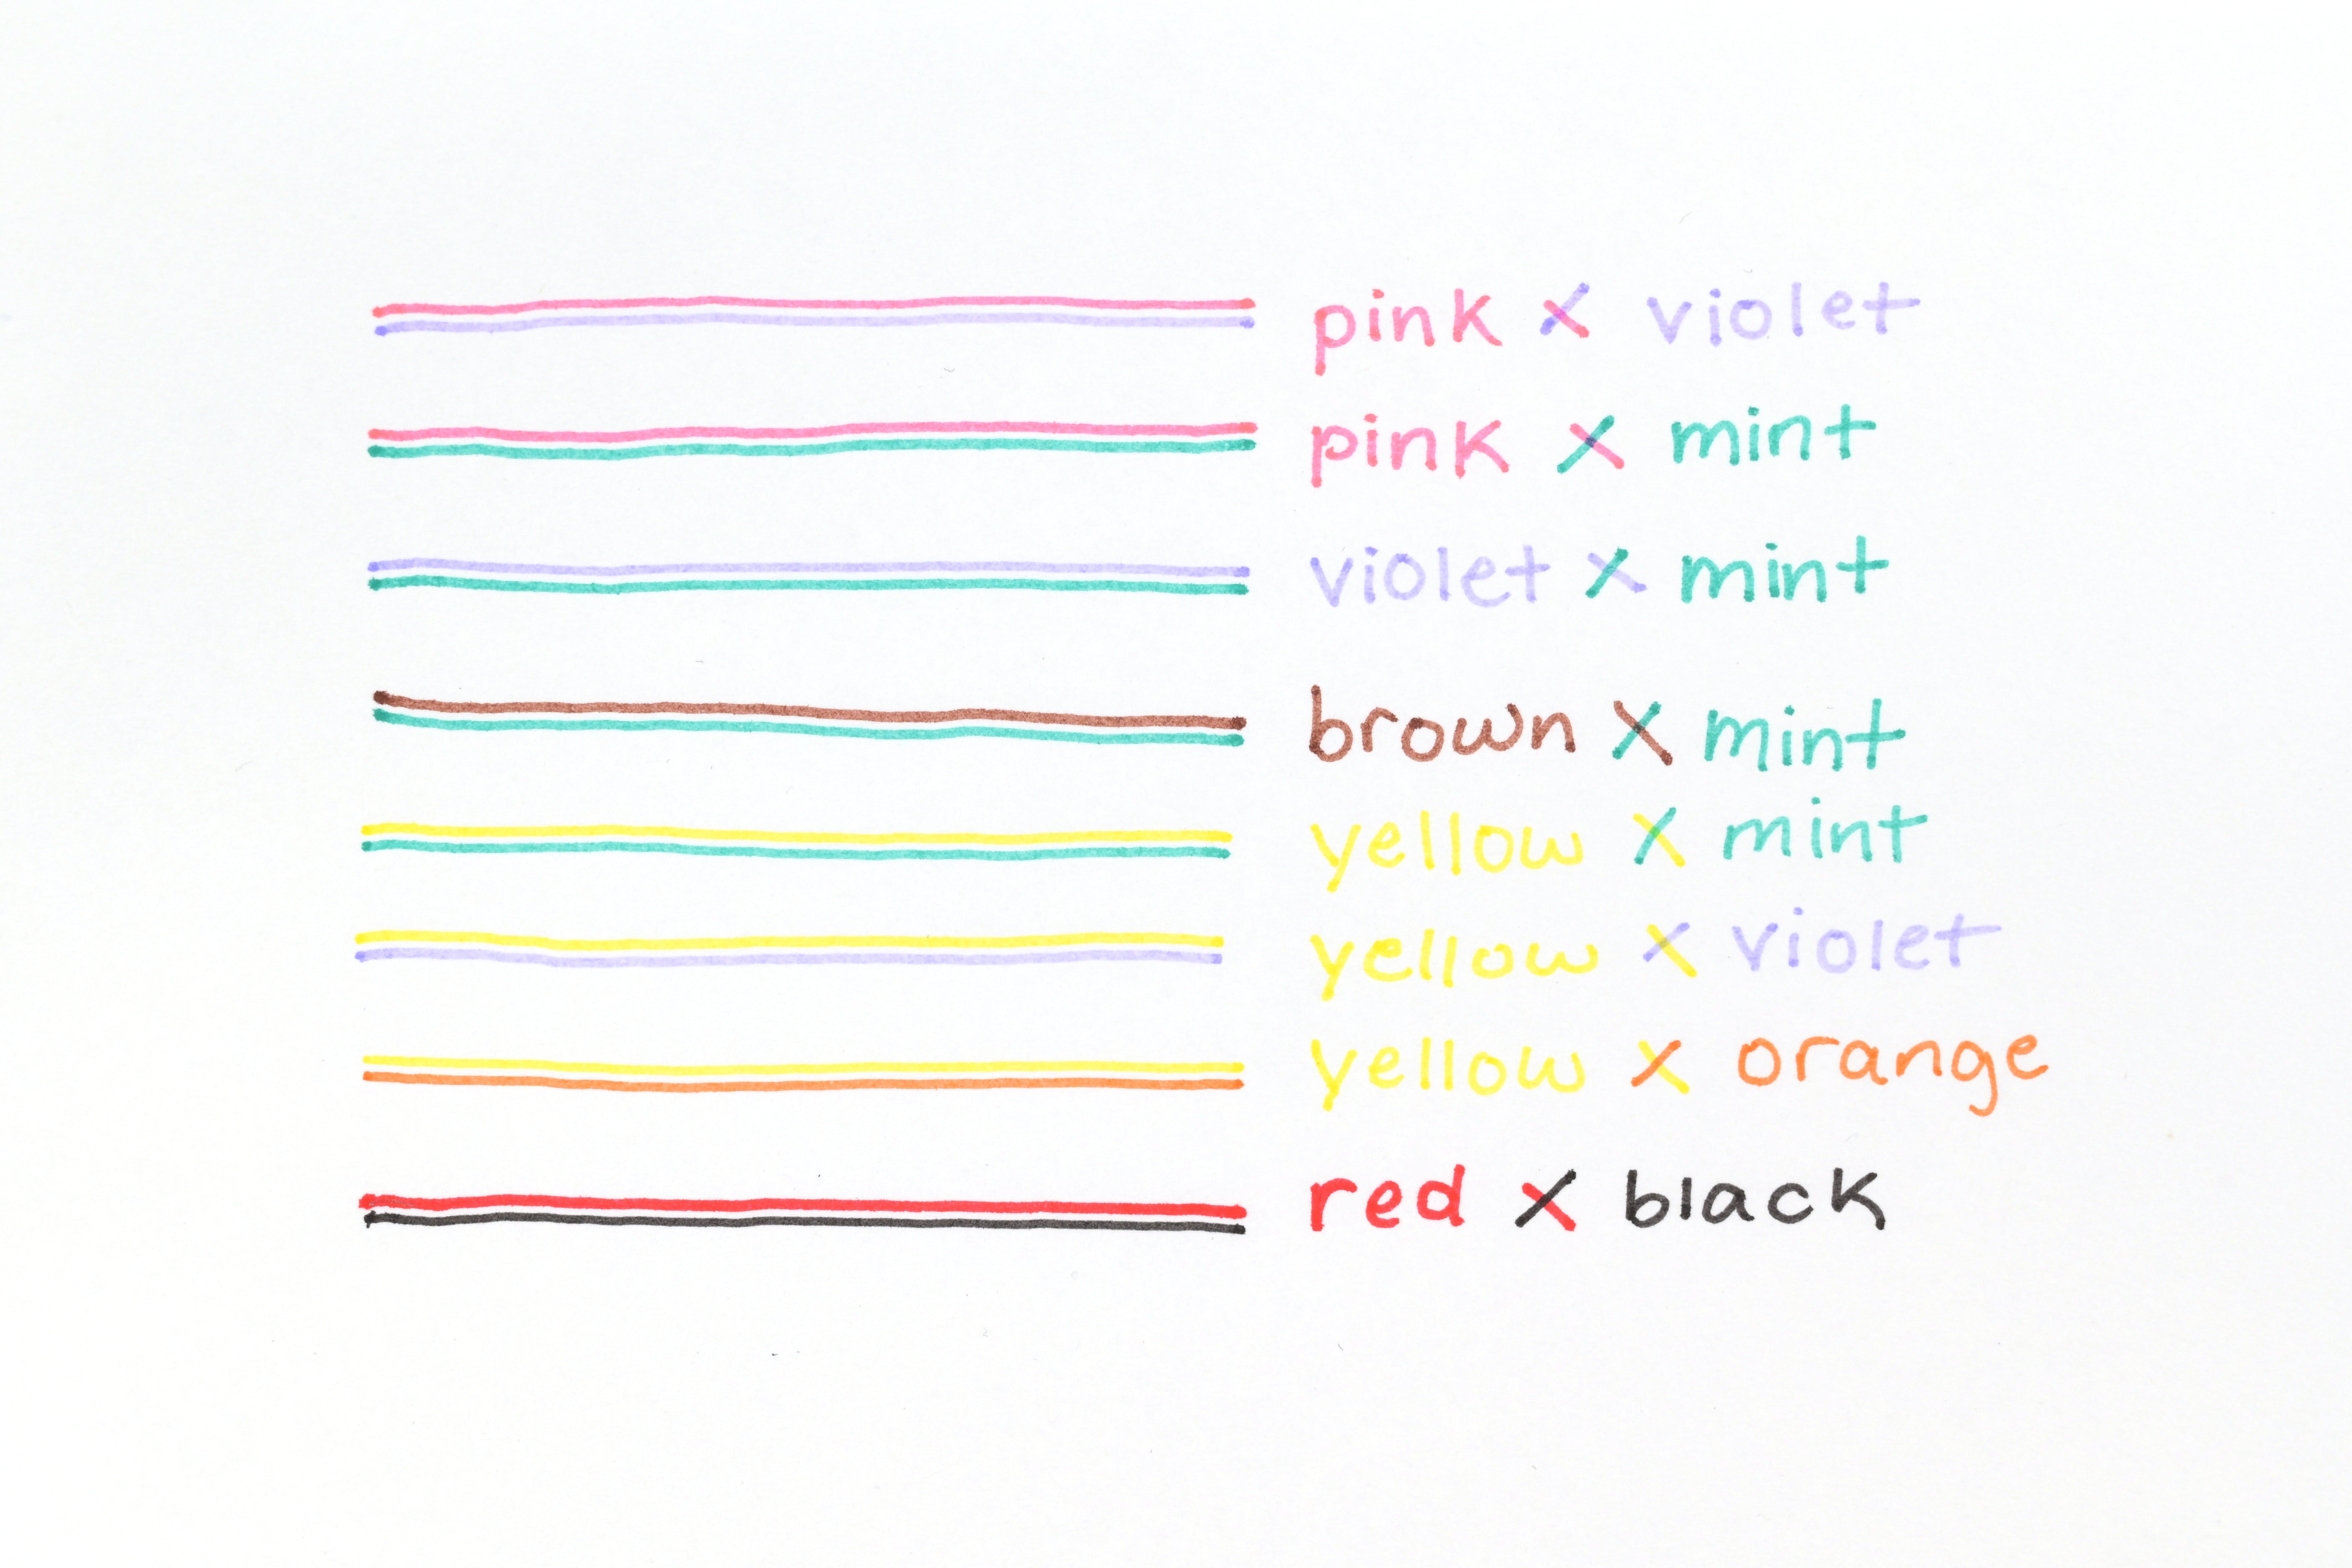 pink x violet
pink x mint
violet x mint
brown x mint
yellow x mint
yellow x violet
yellow x orange
red x black